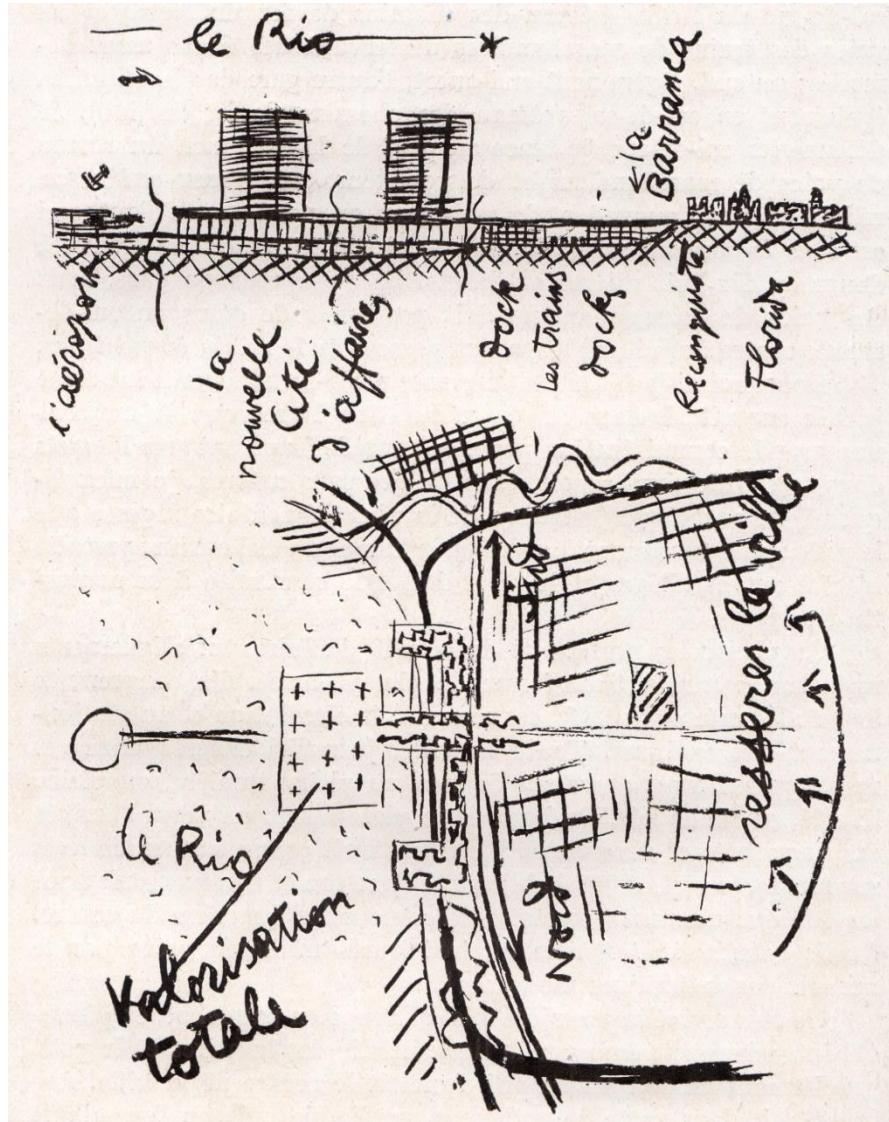 le Rio
la
Barranca
l'aéroport
la
nouvelle
Cité
d'affaires
dock
les trains
docks
Reconquista
Florida
resserrer la ville
le Rio
Nord
Valorisation
totale